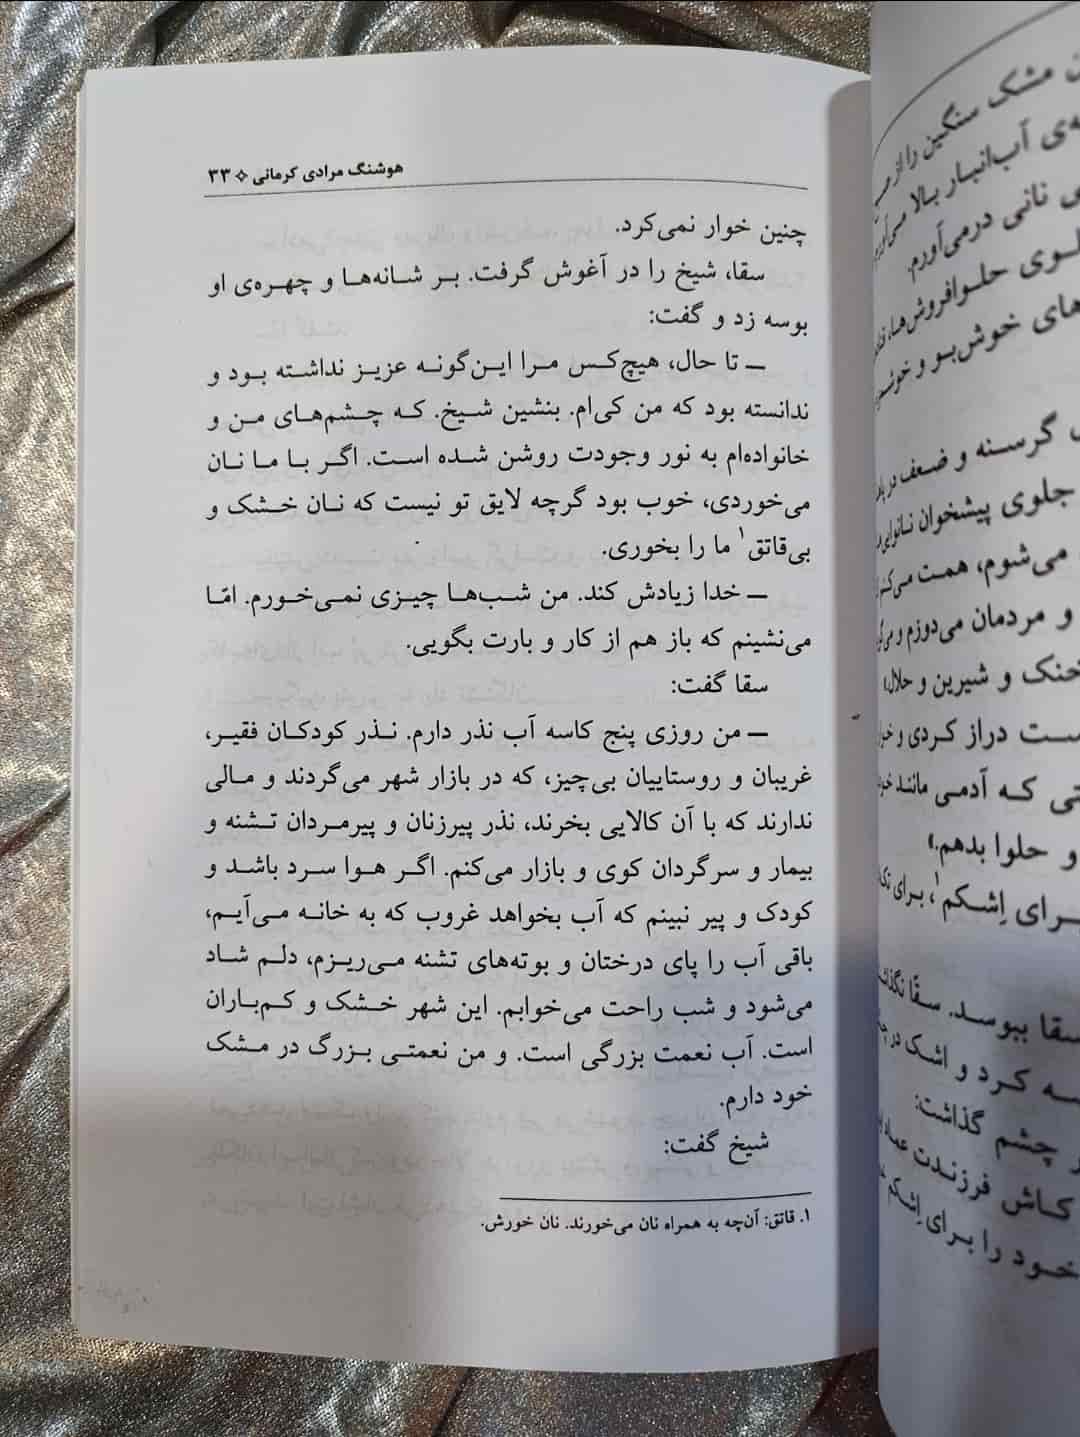 هوشنگ مرادی کرمانی ✧ ۳۳
چنین خوار نمی‌کرد.
سقا، شیخ را در آغوش گرفت. بر شانه‌ها و چهره‌ی او
بوسه زد و گفت:
ـ تا حال، هیچ‌کس مرا این‌گونه عزیز نداشته بود و
ندانسته بود که من کی‌ام. بنشین شیخ. که چشم‌های من و
خانواده‌ام به نور وجودت روشن شده است. اگر با ما نان
می‌خوردی، خوب بود گرچه لایق تو نیست که نان خشک و
بی‌قاتق۱ ما را بخوری.
ـ خدا زیادش کند. من شب‌ها چیزی نمی‌خورم. امّا
می‌نشینم که باز هم از کار و بارت بگویی.
سقا گفت:
ـ من روزی پنج کاسه آب نذر دارم. نذر کودکان فقیر،
غریبان و روستاییان بی‌چیز، که در بازار شهر می‌گردند و مالی
ندارند که با آن کالایی بخرند، نذر پیرزنان و پیرمردان تشنه و
بیمار و سرگردان کوی و بازار می‌کنم. اگر هوا سرد باشد و
کودک و پیر نبینم که آب بخواهد غروب که به خانه می‌آیم،
باقی آب را پای درختان و بوته‌های تشنه می‌ریزم، دلم شاد
می‌شود و شب راحت می‌خوابم. این شهر خشک و کم‌باران
است. آب نعمت بزرگی است. و من نعمتی بزرگ در مشک
خود دارم.
شیخ گفت:
۱. قاتق: آن‌چه به همراه نان می‌خورند. نان خورش.
مشک سنگین را از
آب‌انبار بالا
نانی درمی‌آورم.
حلوافروش‌ها،
های خوش‌بو و
گرسنه و ضعف در
جلوی پیشخوان نانوایی
می‌شوم، همت
و مردمان می‌دوزم و
خنک و شیرین و حلال»
ست دراز کردی و
تی که آدمی مانند
و حلوا بدهم.»
رای اِشکم۱، برای
سقا ببوسد. سقّا
سه کرد و اشک در
ر چشم گذاشت:
کاش فرزندت
خود را برای اِشکم